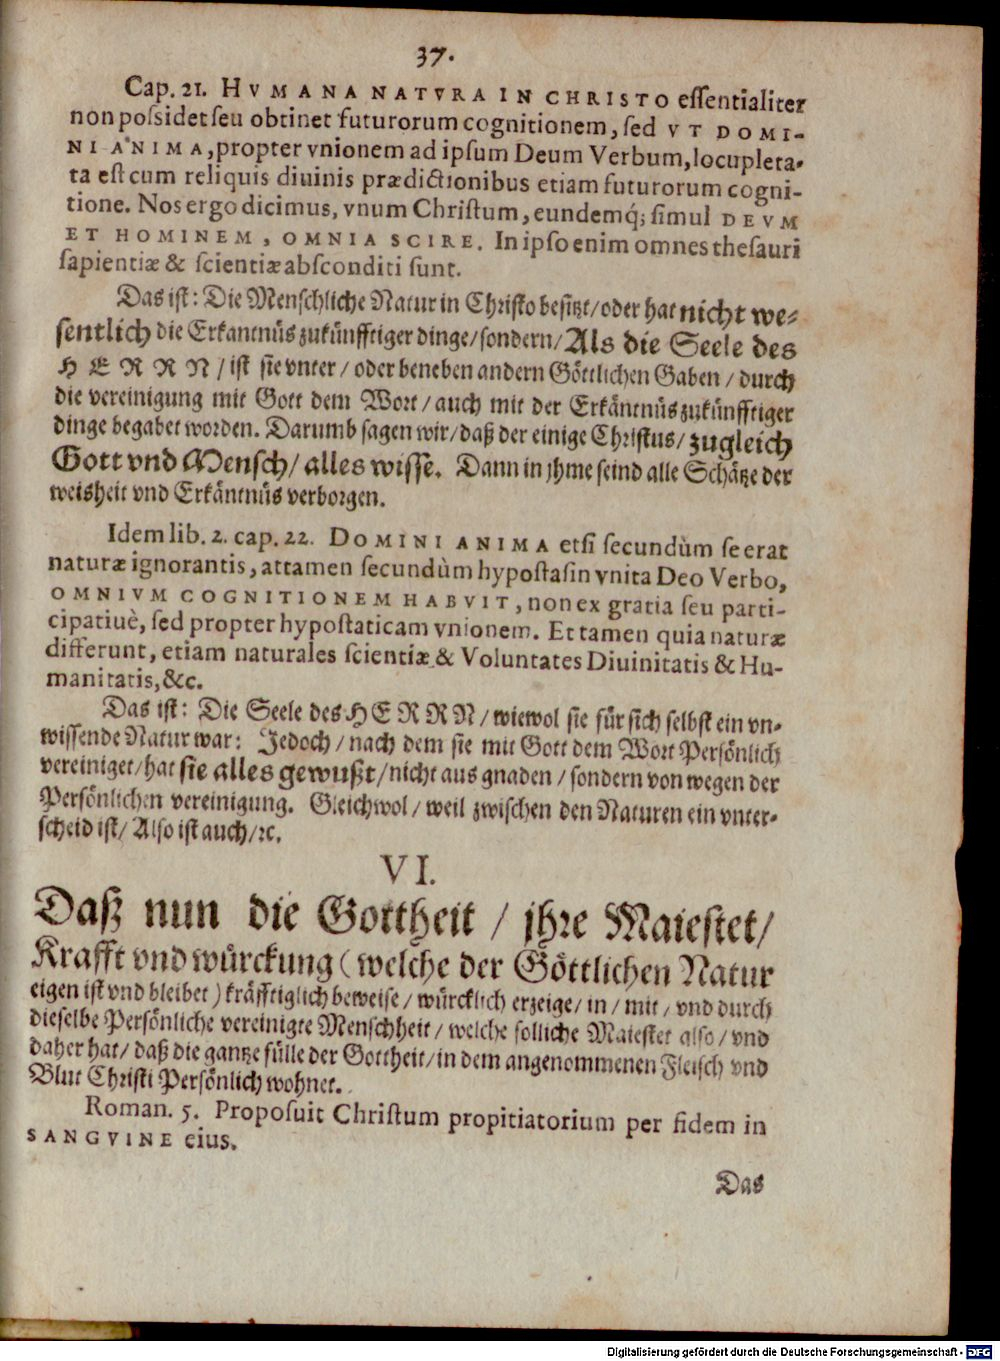 37.
Cap. 21. HVMANA NATVRA IN CHRISTO eſſentialiter
non poſsidet ſeu obtinet futurorum cognitionem, ſed VT DOMI-
NI ANIMA, propter vnionem ad ipſum Deum Verbum, locupleta-
ta eſt cum reliquis diuinis prædictionibus etiam futurorum cogni-
tione. Nos ergo dicimus, vnum Chriſtum, eundemq́; ſimul DEVM
ET HOMINEM, OMNIA SCIRE. In ipſo enim omnes theſauri
ſapientiæ & ſcientiæ abſconditi ſunt.
Das iſt: Die Menſchliche Natur in Chriſto beſitzt/ oder hat nicht we-
ſentlich die Erkantnüs zukünfftiger dinge/ ſondern/ Als die Seele des
HERRN/ iſt ſie vnter/ oder beneben andern Göttlichen Gaben/ durch
die vereinigung mit Gott dem Wort/ auch mit der Erkäntnüs zukünfftiger
dinge begabet worden. Darumb ſagen wir/ daß der einige Chriſtus/ zugleich
Gott vnd Menſch/ alles wiſſe. Dann in jhme ſeind alle Schätze der
weisheit vnd Erkäntnüs verborgen.
Idem lib. 2. cap. 22. DOMINI ANIMA etſi ſecundùm ſe erat
naturæ ignorantis, attamen ſecundùm hypoſtaſin vnita Deo Verbo,
OMNIVM COGNITIONEM HABVIT, non ex gratia ſeu parti-
cipatiuè, ſed propter hypoſtaticam vnionem. Et tamen quia naturæ
differunt, etiam naturales ſcientiæ & Voluntates Diuinitatis & Hu-
manitatis, &c.
Das iſt: Die Seele des HERRN/ wiewol ſie für ſich ſelbſt ein vn-
wiſſende Natur war: Jedoch/ nach dem ſie mit Gott dem Wort Perſönlich
vereiniget/ hat ſie alles gewußt/ nicht aus gnaden/ ſondern von wegen der
Perſönlichen vereinigung. Gleichwol/ weil zwiſchen den Naturen ein vnter-
ſcheid iſt/ Alſo iſt auch/ ꝛc.
VI.
Daß nun die Gottheit/ jhre Maieſtet/
Krafft vnd würckung (welche der Göttlichen Natur
eigen iſt vnd bleibet) kräfftiglich beweiſe/ würcklich erzeige/ in/ mit/ vnd durch
dieſelbe Perſönliche vereinigte Menſchheit/ welche ſolliche Maieſtet alſo/ vnd
daher hat/ daß die gantze fülle der Gottheit/ in dem angenommenen Fleiſch vnd
Blut Chriſti Perſönlich wohnet.
Roman. 5. Propoſuit Chriſtum propitiatorium per fidem in
SANGVINE eius.
Das
Digitalisierung gefördert durch die Deutsche Forschungsgemeinschaft - DFG